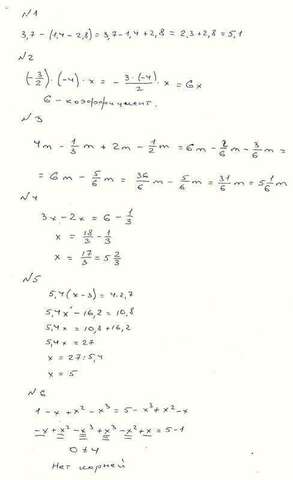 №1
3,7 - (1,4 - 2,8) = 3,7 - 1,4 + 2,8 = 2,3 + 2,8 = 5,1
№2
(-3/2) · (-4) · x = - 3·(-4)/2 · x = 6x
6 - коэффициент.
№3
4m - 1/3 m + 2m - 1/2 m = 6m - 2/6 m - 3/6 m =
= 6m - 5/6 m = 36/6 m - 5/6 m = 31/6 m = 5 1/6 m
№4
3x - 2x = 6 - 1/3
x = 18/3 - 1/3
x = 17/3 = 5 2/3
№5
5,4(x - 3) = 4·2,7
5,4x - 16,2 = 10,8
5,4x = 10,8 + 16,2
5,4x = 27
x = 27 : 5,4
x = 5
№6
1 - x + x² - x³ = 5 - x³ + x² - x
-x + x² - x³ + x³ - x² + x = 5 - 1
0 ≠ 4
Нет корней